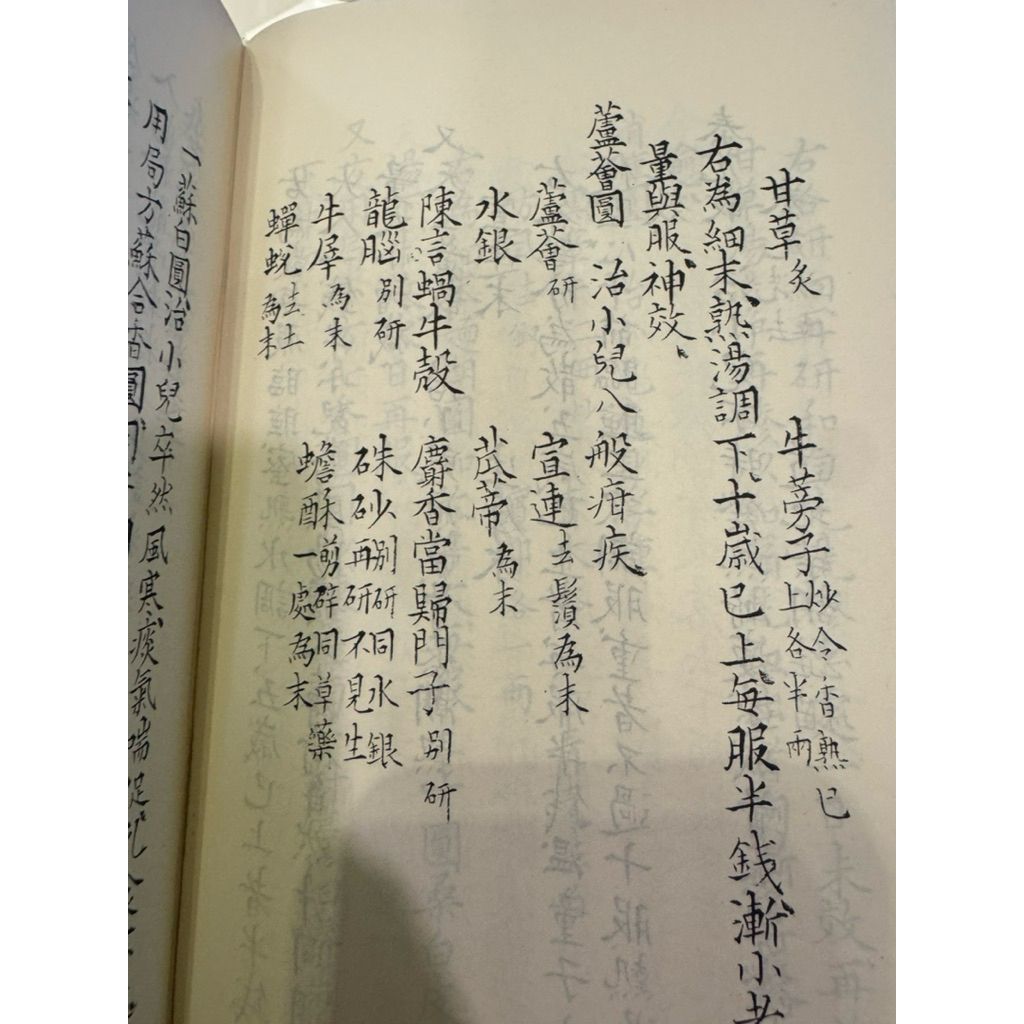 甘草炙　牛蒡子炒令香熟已上各半兩
右為細末熟湯調下十歲已上每服半錢漸小者
量與服神效
蘆薈圓　治小兒八般疳疾
蘆薈研　宣連去鬚為末
水銀　蒂為末
陳言蝸牛殼　麝香當歸門子別研
龍腦別研　硃砂別研同水銀再研不見生
牛犀為末　蟾酥一剪碎同草藥處為末
蟬蛻去土為末
一蘇白圓治小兒卒然風寒痰氣喘促
用局方蘇合香圓